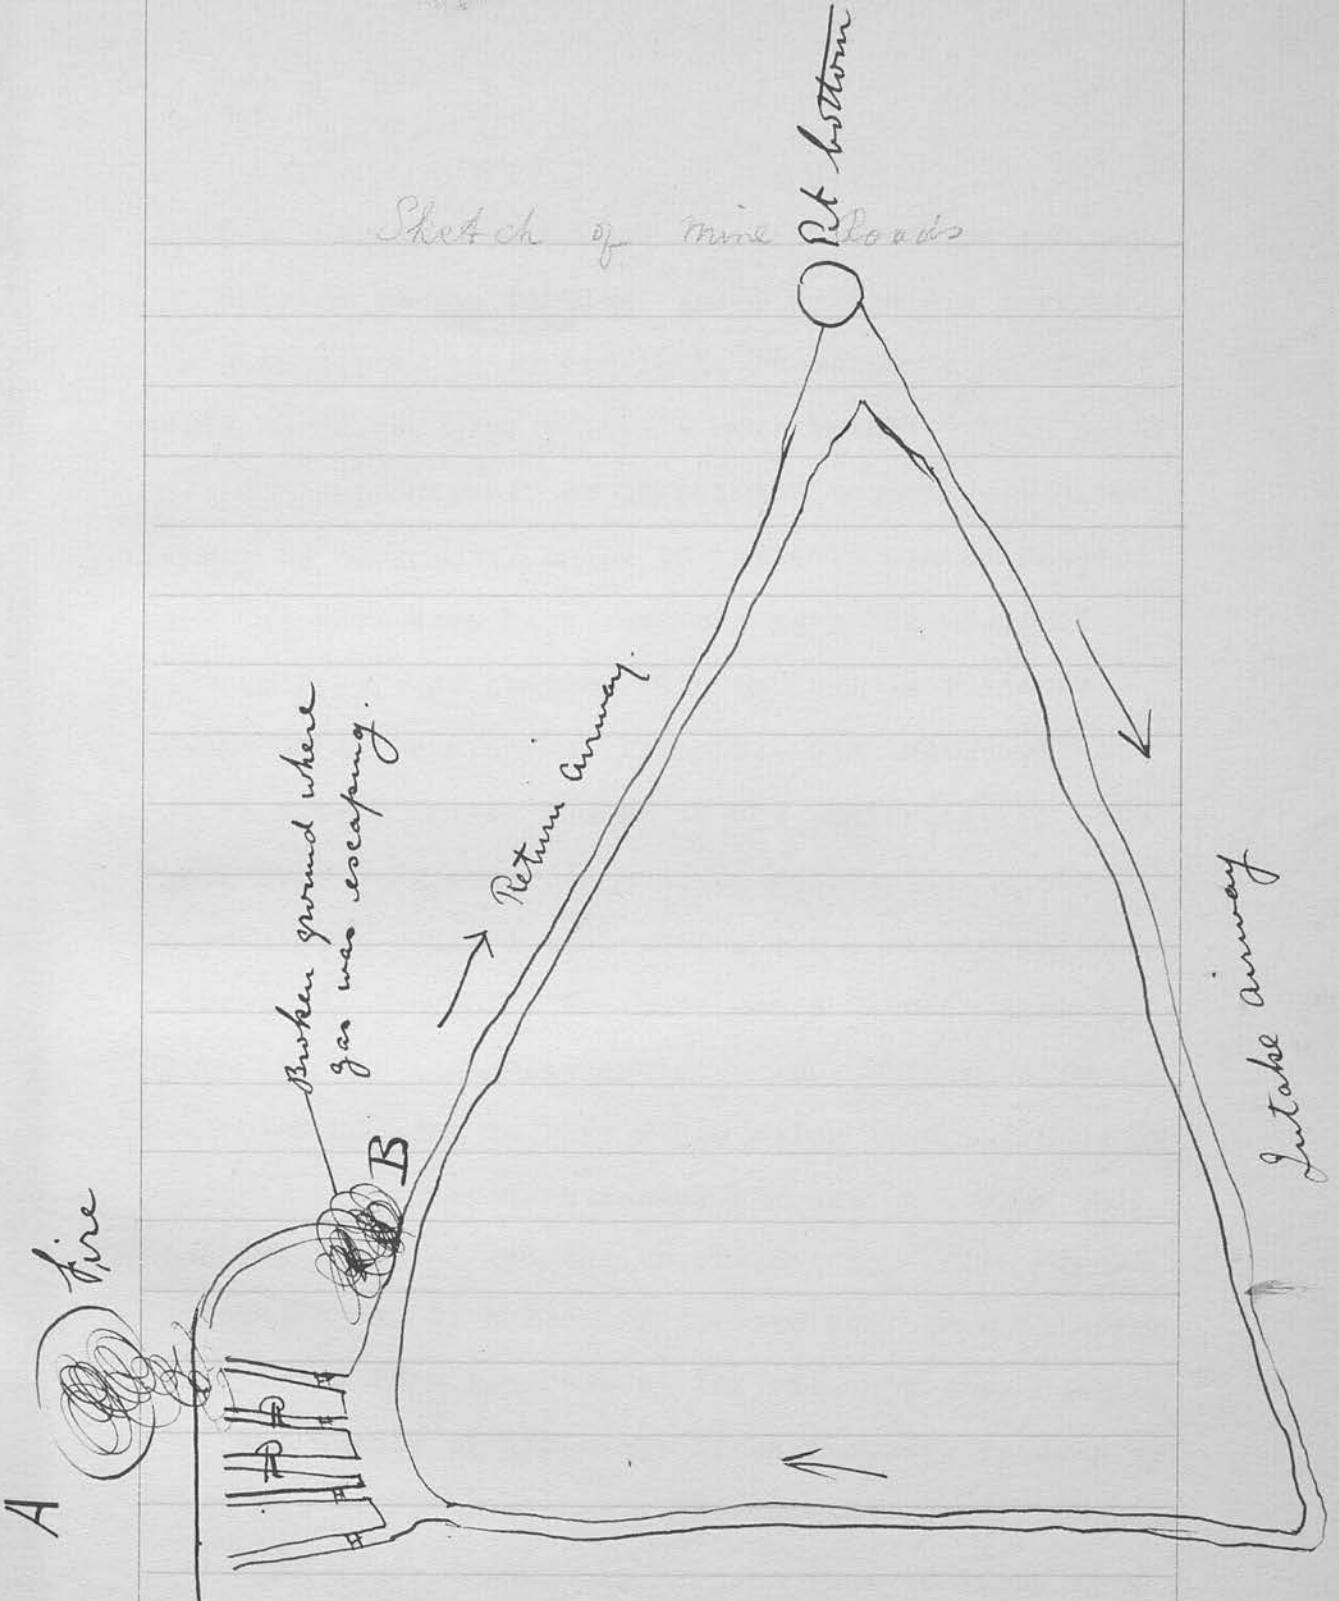 Sketch of mine Roads
Pit bottom
Broken ground where
gas was escaping.
Return Airway.
B
Fire
A
Intake airway